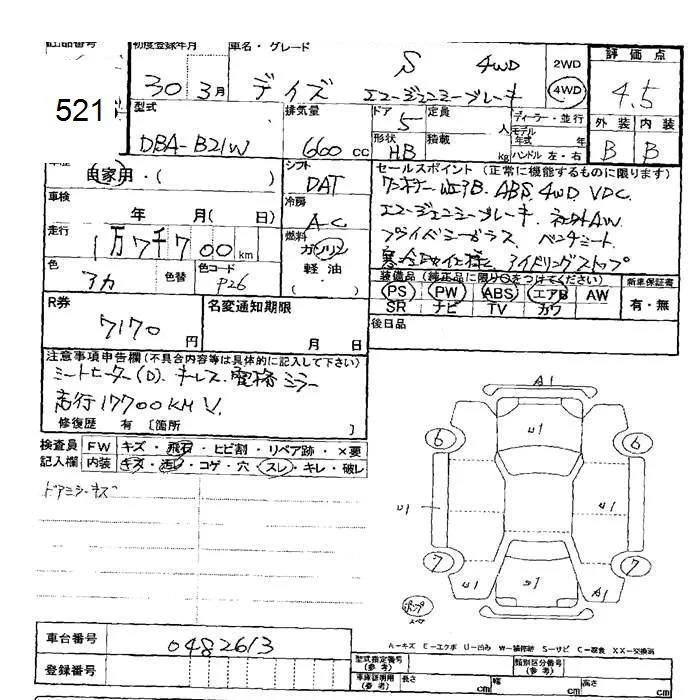 出品番号 初度登録年月 車名・グレード 評価点
30 3月 デイズ S 4WD 2WD 4WD 4.5
エマージェンシーブレーキ
521 型式 排気量 ドア 定員 ディーラー・並行 外装 内装
DBA-B21W 660 cc 5 人 モデル年式 年 B B
形状 積載 HB kg ハンドル 左・右
自家用・( ) シフト セールスポイント(正常に機能するものに限ります)
DAT ワンオーナー W・エアB. ABS. 4WD VDC.
車検 冷房 エマージェンシーブレーキ. 社外AW.
年 月( 日) A.C プライバシーガラス ベンチシート.
走行 燃料 寒冷地仕様 アイドリングストップ
1万7千700km ガソリン
軽油・
( ) 装備品(純正品に限り○をつけてください) 新車保証書
色 アカ 色替 色コード P26 PS PW ABS エアB AW 有・無
SR ナビ TV カワ
R券 名変通知期限 後日品
7170円 月 日
注意事項申告欄(不具合内容等は具体的に記入して下さい)
シートヒーター(D). キーレス. 電格ミラー
走行17700KM V.
修復歴 有〔箇所 〕
検査員 FW キズ・飛石・ヒビ割・リペア跡・×要
記入欄 内装 キズ・汚レ・コゲ・穴・スレ・キレ・破レ
ドアミラーキズ
A1
6 U1 6
U1 U1
7 7
U1 A1
ポンプ
スペア
車台番号 0482613
A-キズ E-エクボ U-凹み W-補修跡 S-サビ C-腐食 XX-交換済
登録番号
型式指定番号(参考) 類別区分番号(参考)
車庫証明用(参考) 長さ cm 幅 cm 高さ cm